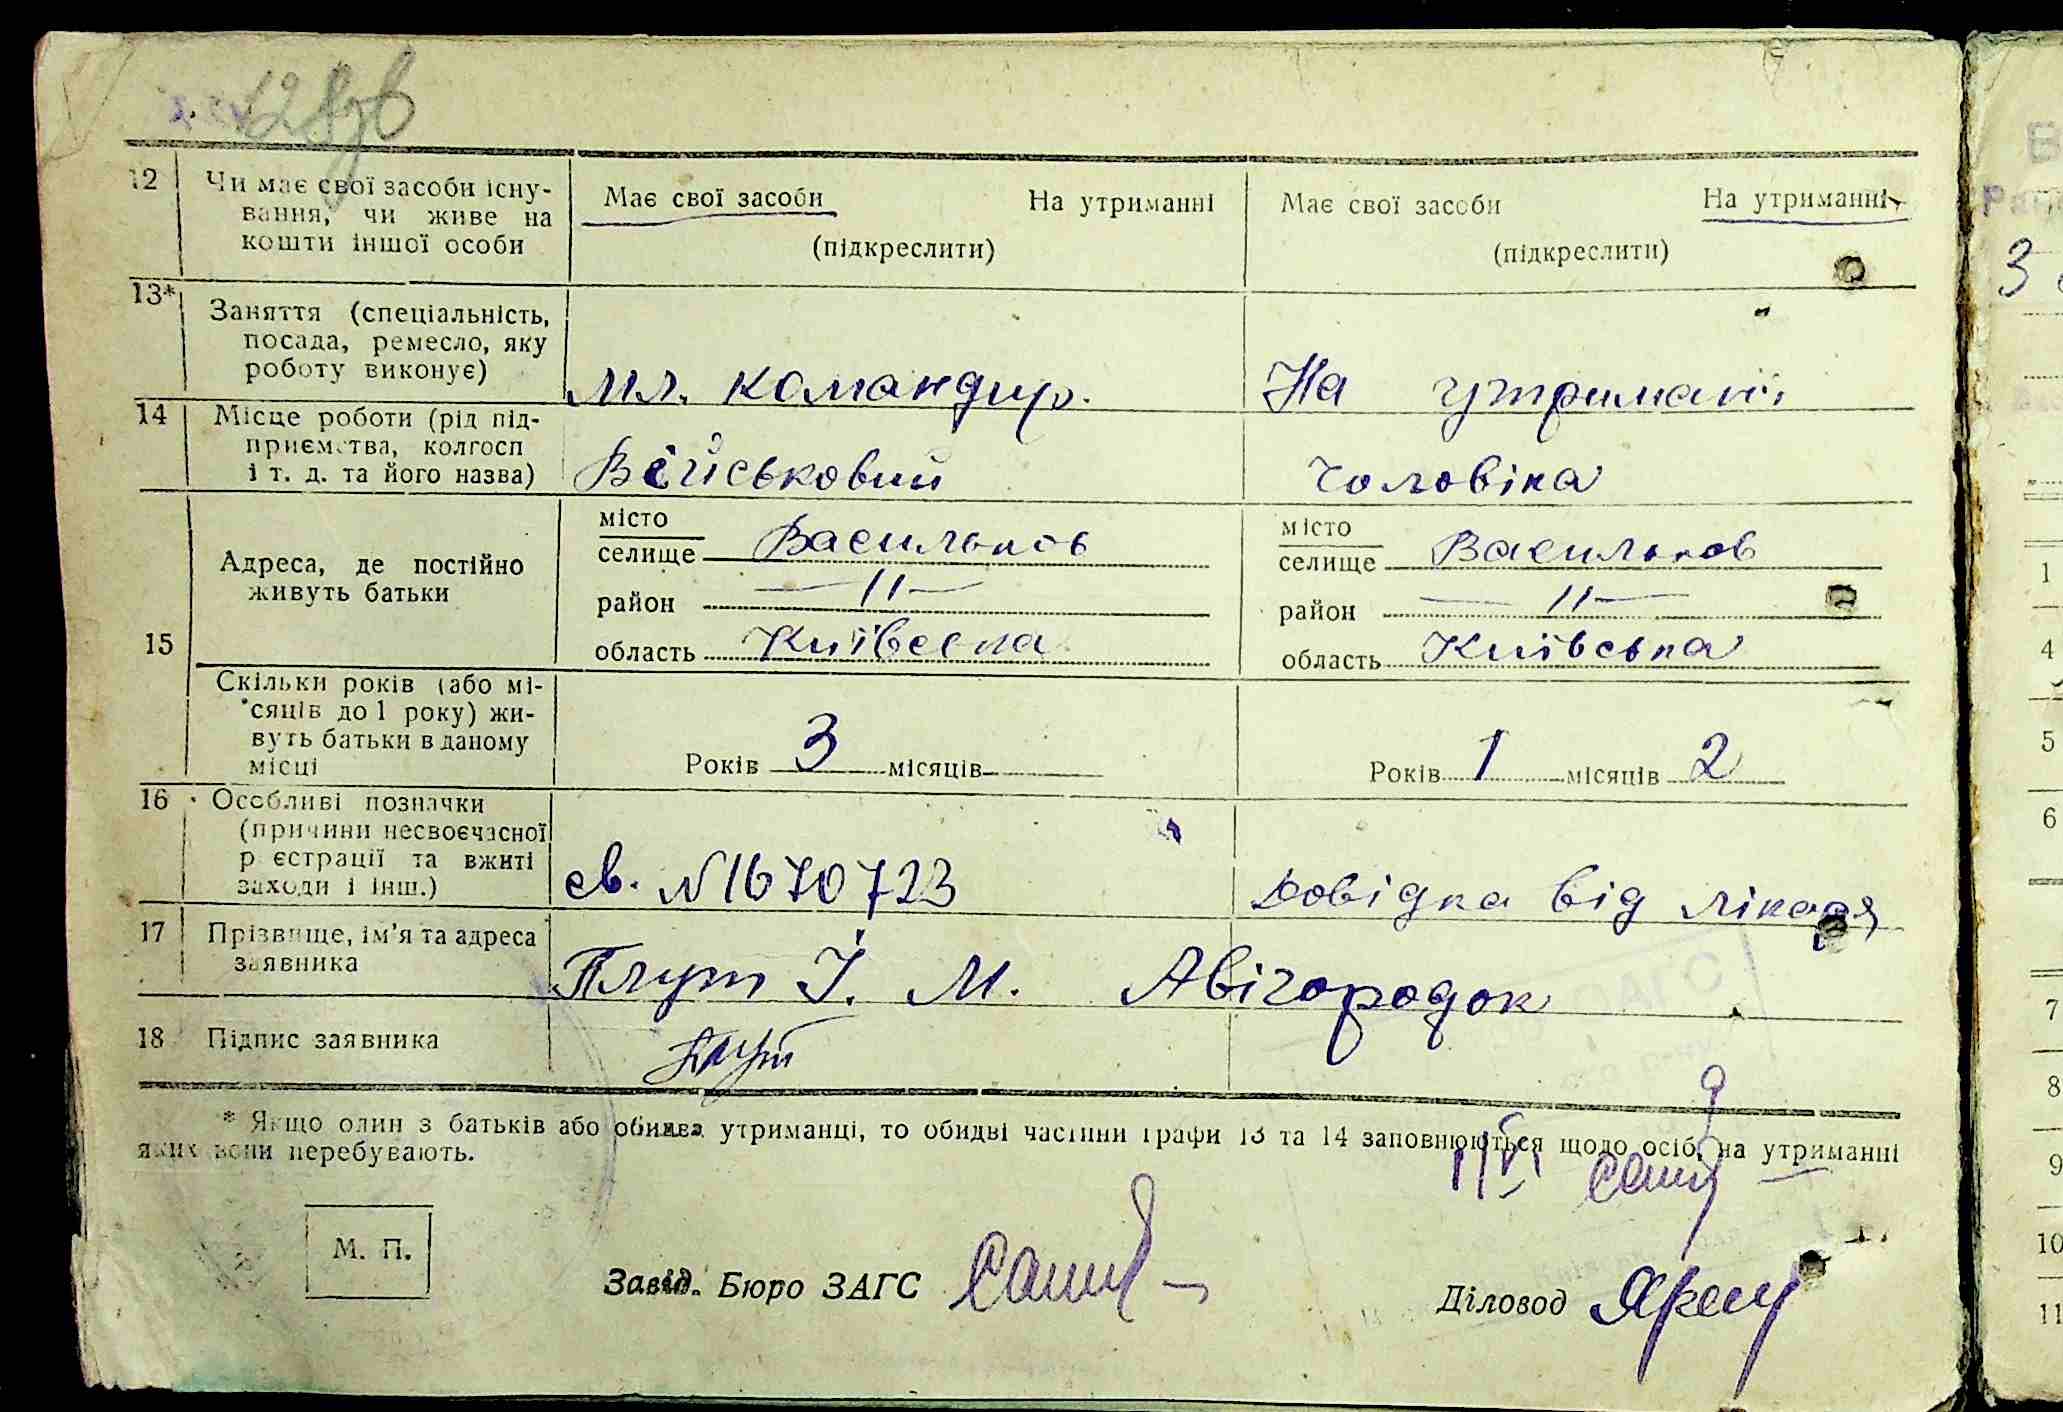 12 Чи має свої засоби існу-
вання, чи живе на
кошти іншої особи
Має свої засоби На утриманні
(підкреслити)
Має свої засоби На утриманні
(підкреслити)
13* Заняття (спеціальність,
посада, ремесло, яку
роботу виконує)
Мл. командир.
На утримані
14 Місце роботи (рід під-
приємства, колгосп
і т. д. та його назва)
Військовий
чоловіка
15
Адреса, де постійно
живуть батьки
місто
селище Васильков
район —11—
область Київська
місто
селище Васильков
район —11—
область Київська
Скільки років (або мі-
сяців до 1 року) жи-
вуть батьки в даному
місці
Років 3 місяців
Років 1 місяців 2
16 Особливі позначки
(причини несвоєчасної
р єстрації та вжиті
заходи і інш.)
св. №1670723
Довідка від лікаря
17 Прізвище, ім'я та адреса
заявника
Плут І. М. Авігородок
18 Підпис заявника
Плут
* Якщо один з батьків або обидва утриманці, то обидві частини графи 13 та 14 заповнюються щодо осіб, на утриманні
яких вони перебувають.
М. П.
Завід. Бюро ЗАГС
Діловод
3
1
4
5
6
7
8
9
10
11